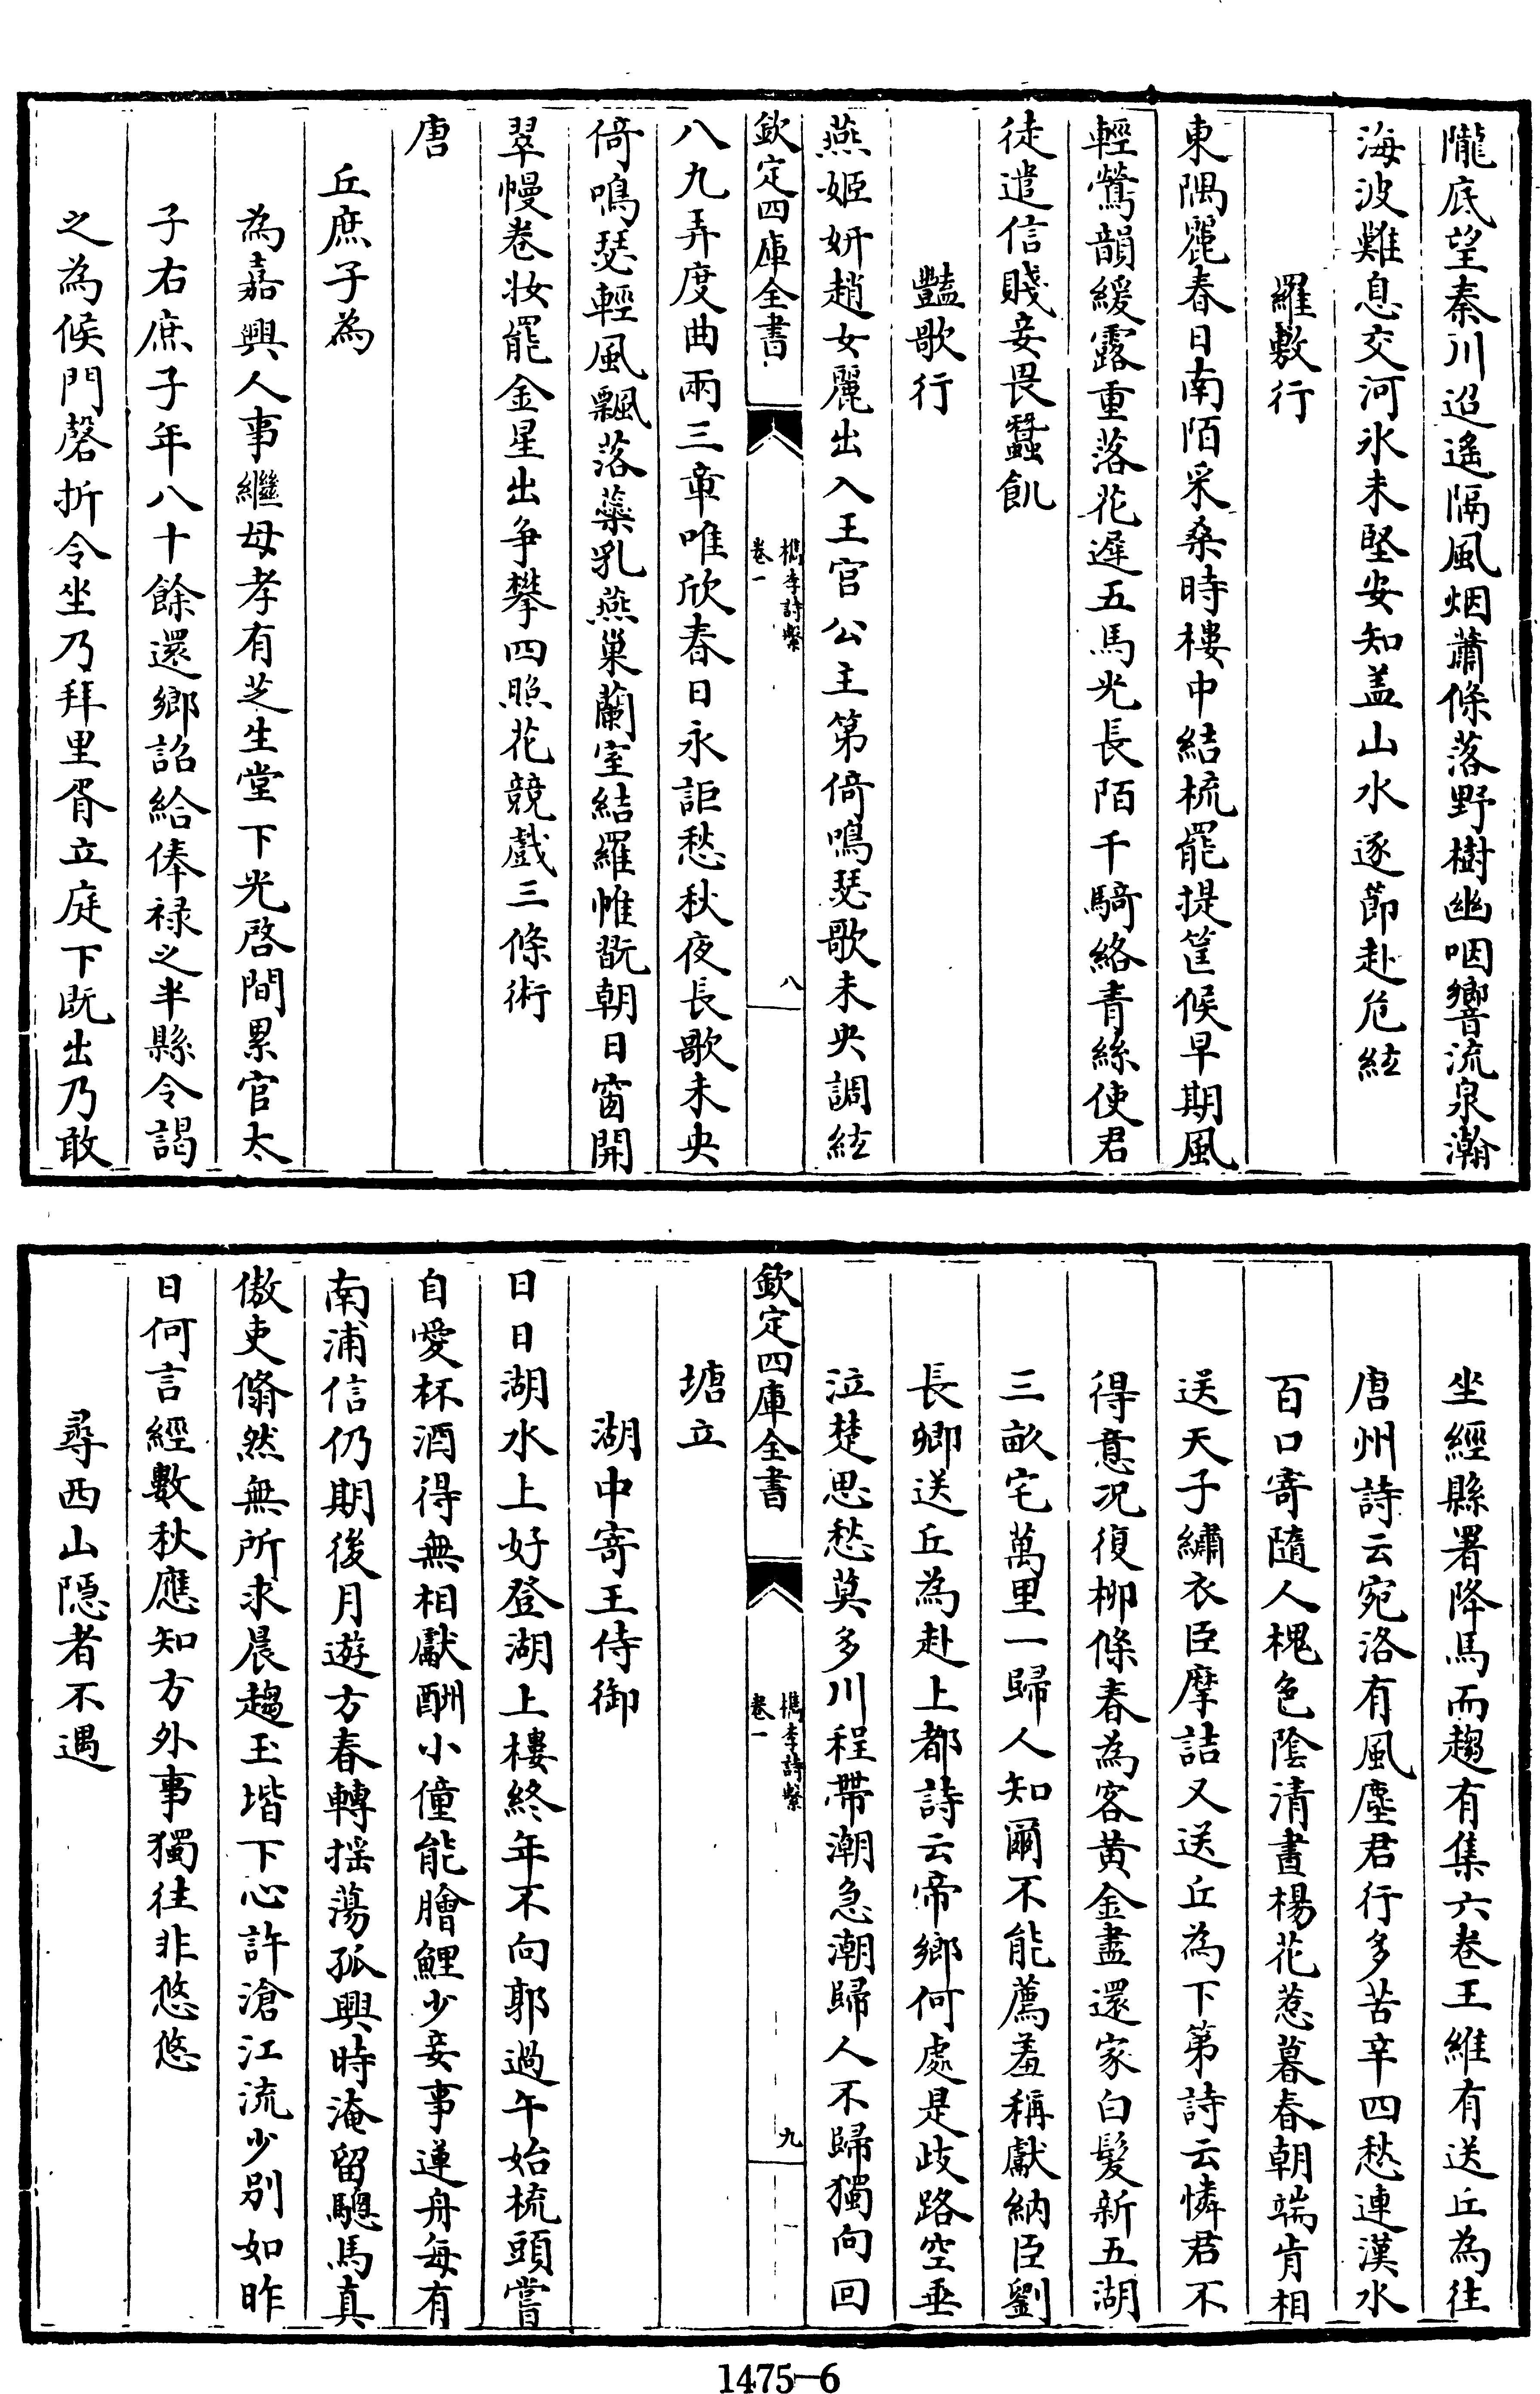 隴底望秦川迢遙隔風烟蕭條落野樹幽咽響流泉瀚
海波難息交河氷未堅安知盖山水逐節赴危絃
羅敷行
東隅麗春日南陌采桑時樓中結梳罷提筐候早期風
輕鶯韻緩露重落花遲五馬光長陌千騎絡青絲使君
徒遣信賤妾畏蠶飢
豔歌行
燕姬妍趙女麗出入王宫公主第倚鳴瑟歌未央調絃
欽定四庫全書
檇李詩繫
卷一
八
八九弄度曲兩三章唯欣春日永詎愁秋夜長歌未央
倚鳴瑟輕風飄落蘂乳燕巢蘭室結羅帷翫朝日窗開
翠幔卷妝罷金星出爭攀四照花競戲三條術
唐
丘庶子為
為嘉興人事繼母孝有芝生堂下光啓間累官太
子右庶子年八十餘還鄉詔給俸禄之半縣令謁
之為候門磬折令坐乃拜里胥立庭下既出乃敢
坐經縣署降馬而趨有集六卷王維有送丘為往
唐州詩云宛洛有風塵君行多苦辛四愁連漢水
百口寄隨人槐色陰清晝楊花惹暮春朝端肯相
送天子繡衣臣摩詰又送丘為下第詩云憐君不
得意况復柳條春為客黄金盡還家白髮新五湖
三畝宅萬里一歸人知爾不能薦羞稱獻納臣劉
長卿送丘為赴上都詩云帝鄉何處是歧路空垂
泣楚思愁莫多川程帶潮急潮歸人不歸獨向回
欽定四庫全書
檇李詩繫
卷一
九
塘立
湖中寄王侍御
日日湖水上好登湖上樓終年不向郭過午始梳頭嘗
自愛杯酒得無相獻酬小僮能膾鯉少妾事蓮舟每有
南浦信仍期後月遊方春轉揺蕩孤興時淹留驄馬真
傲吏翛然無所求晨趨玉堦下心許滄江流少别如昨
日何言經數秋應知方外事獨往非悠悠
尋西山隱者不遇
1475—6